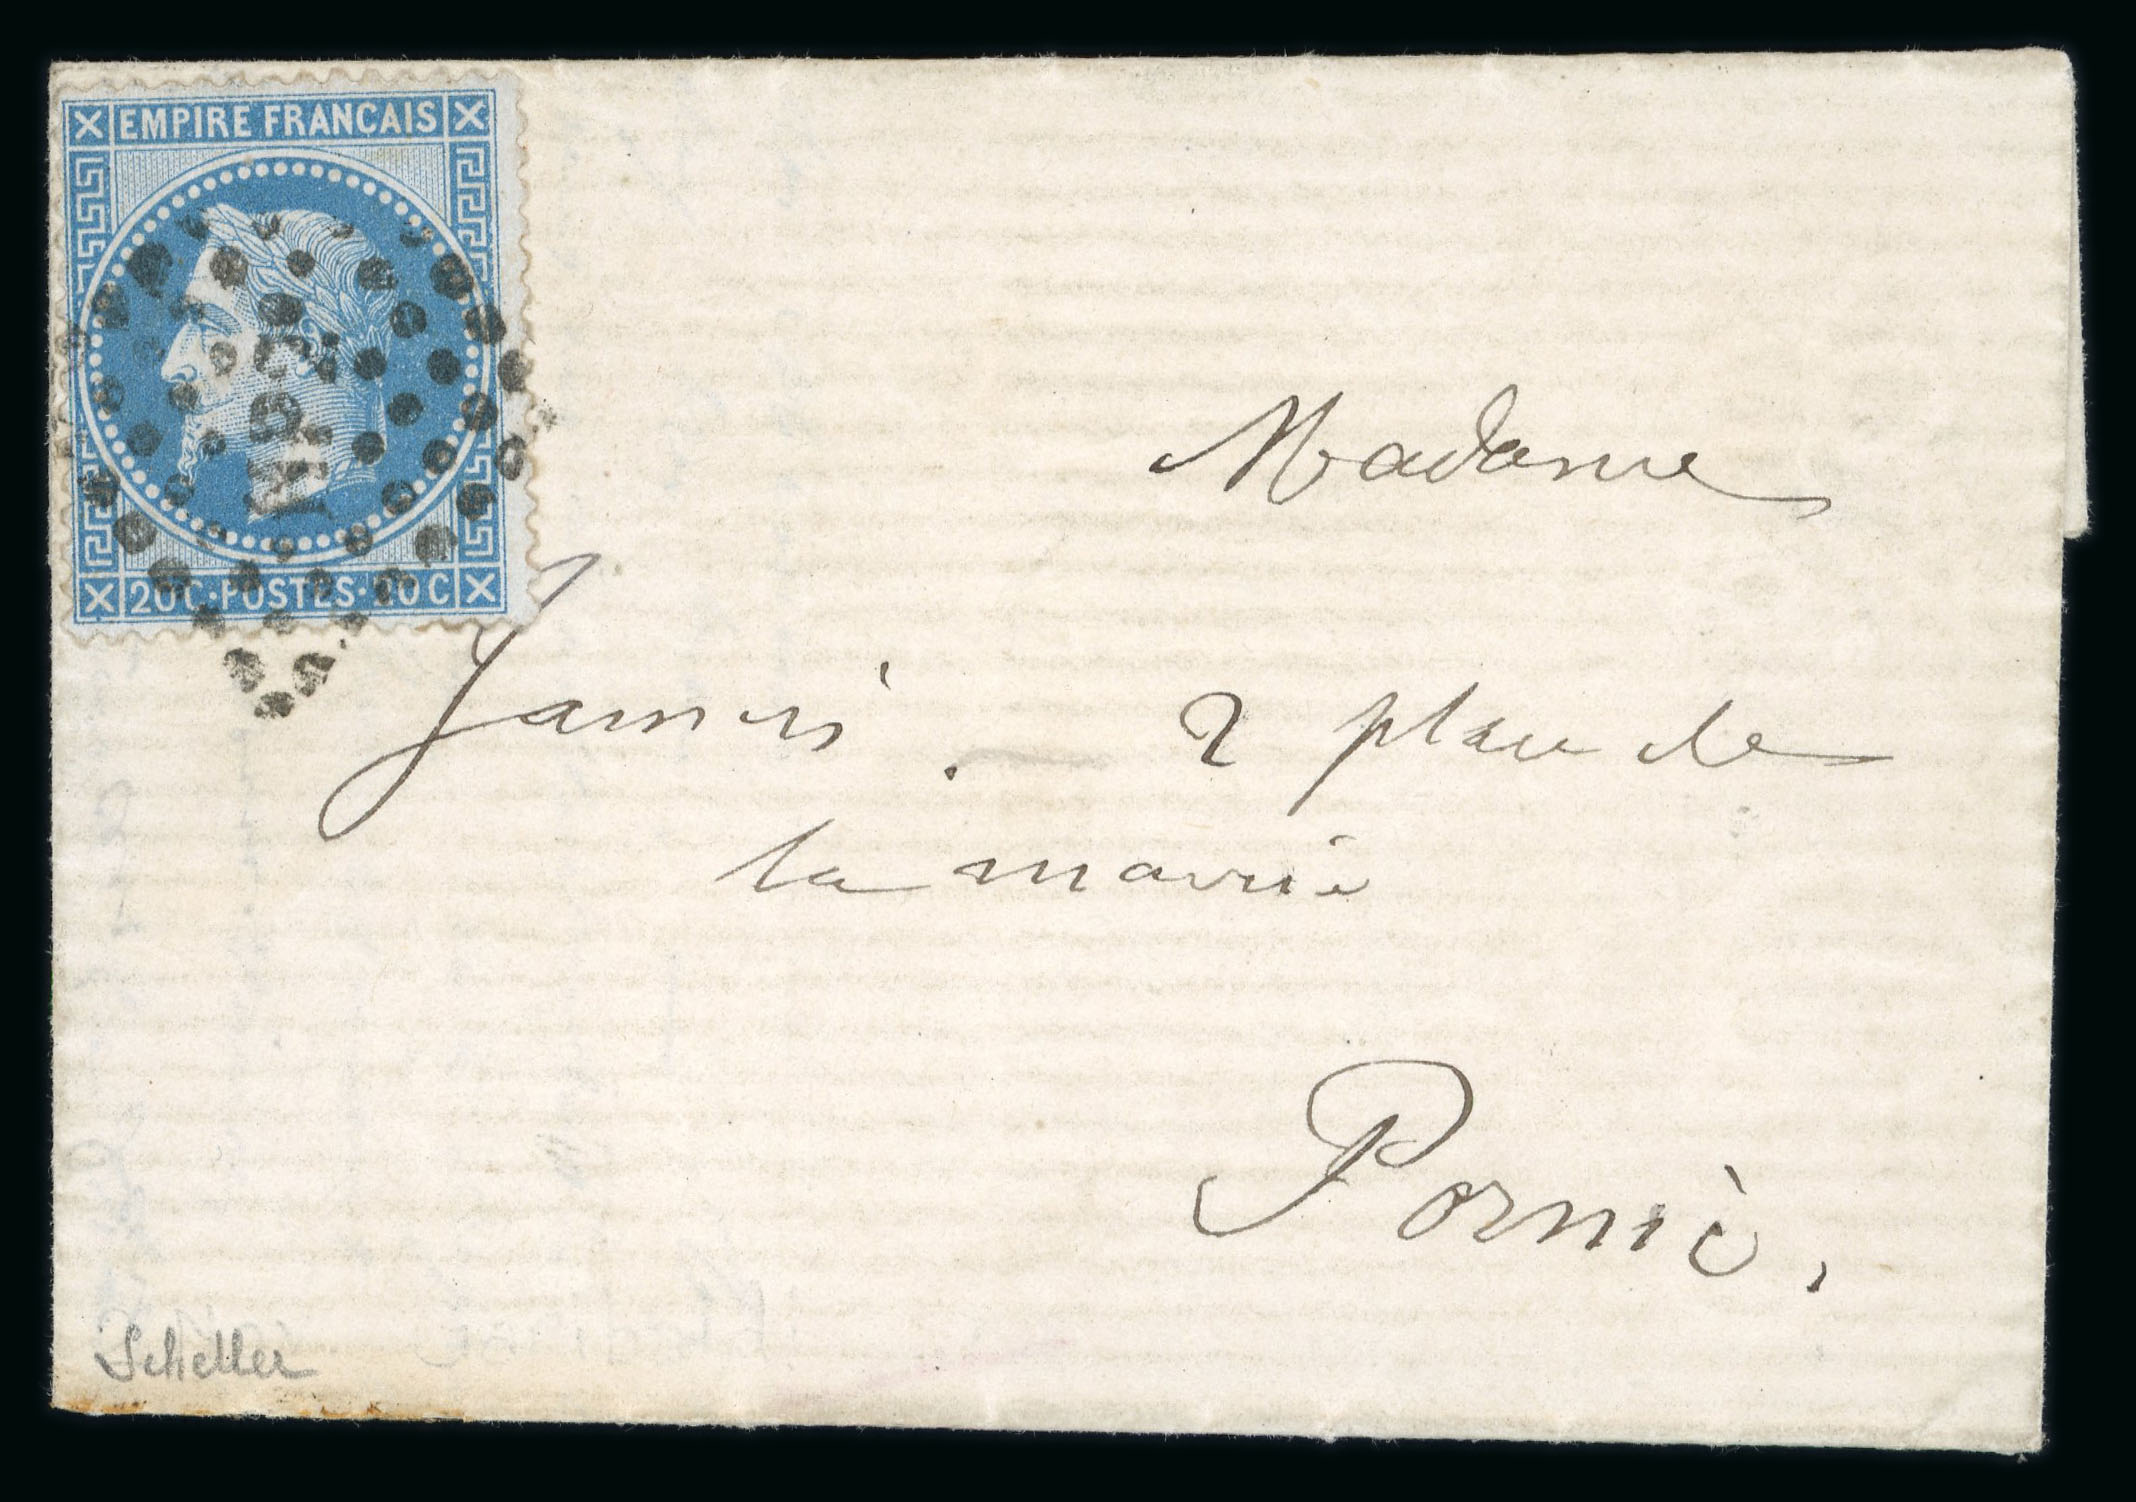 EMPIRE FRANCAIS
20C·POSTES·20C
Madame
Jamin 2 place de
la mairie
Pornic.
Scheller